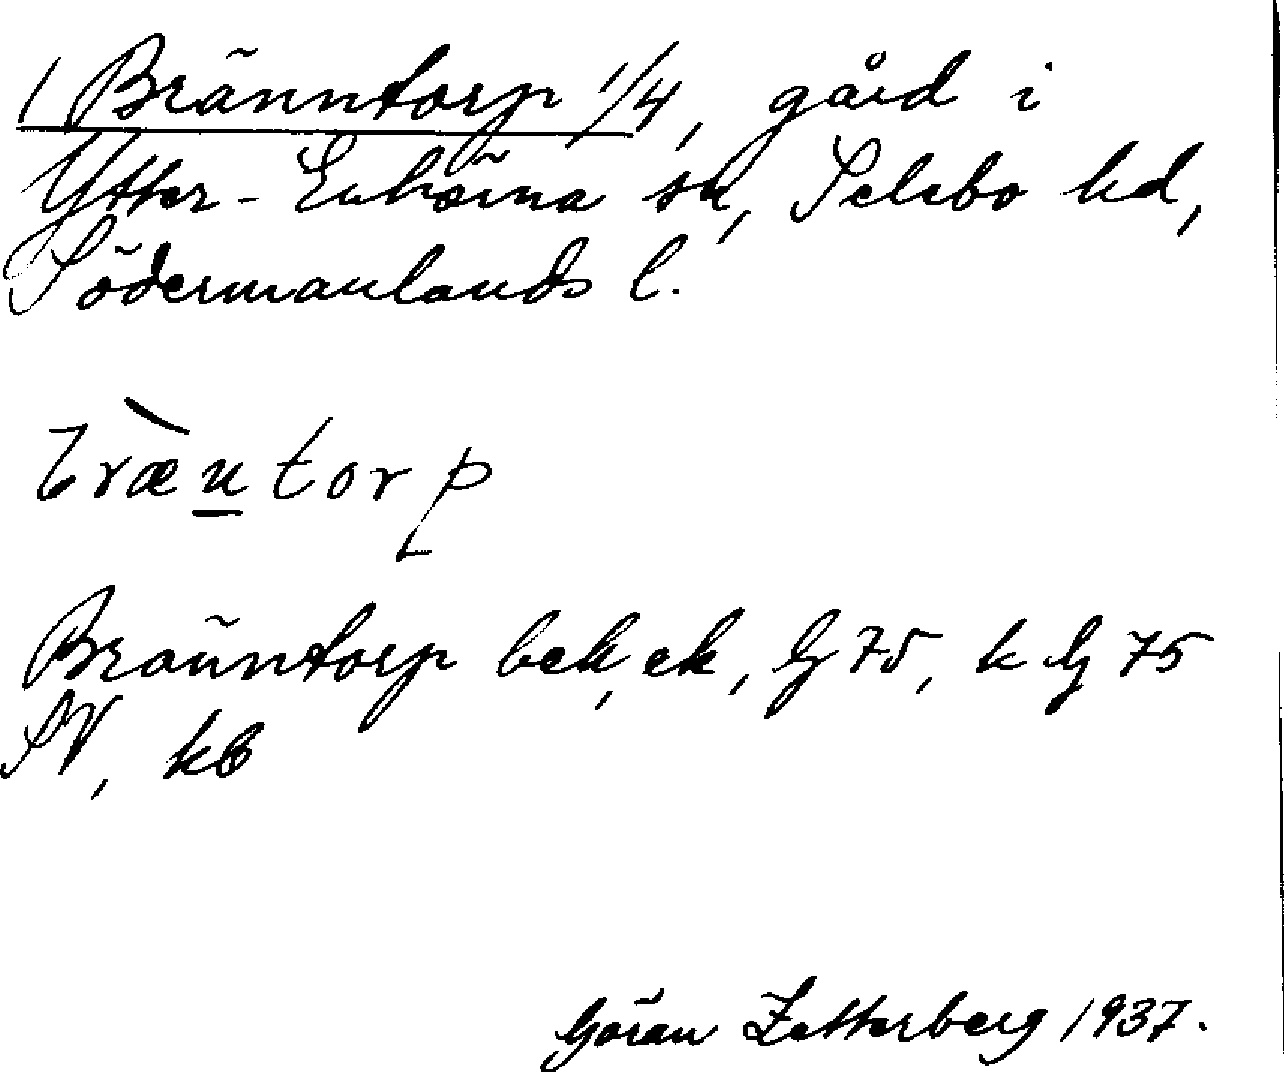 1 Bränntorp 1/4, gård i
Ytter-Enhörna sn, Selebo hd,
Södermanlands l.
bræ̀ntorp
Bränntorp bek, ek, G 75, k G 75
SV, kb
Göran Zetterberg 1937.